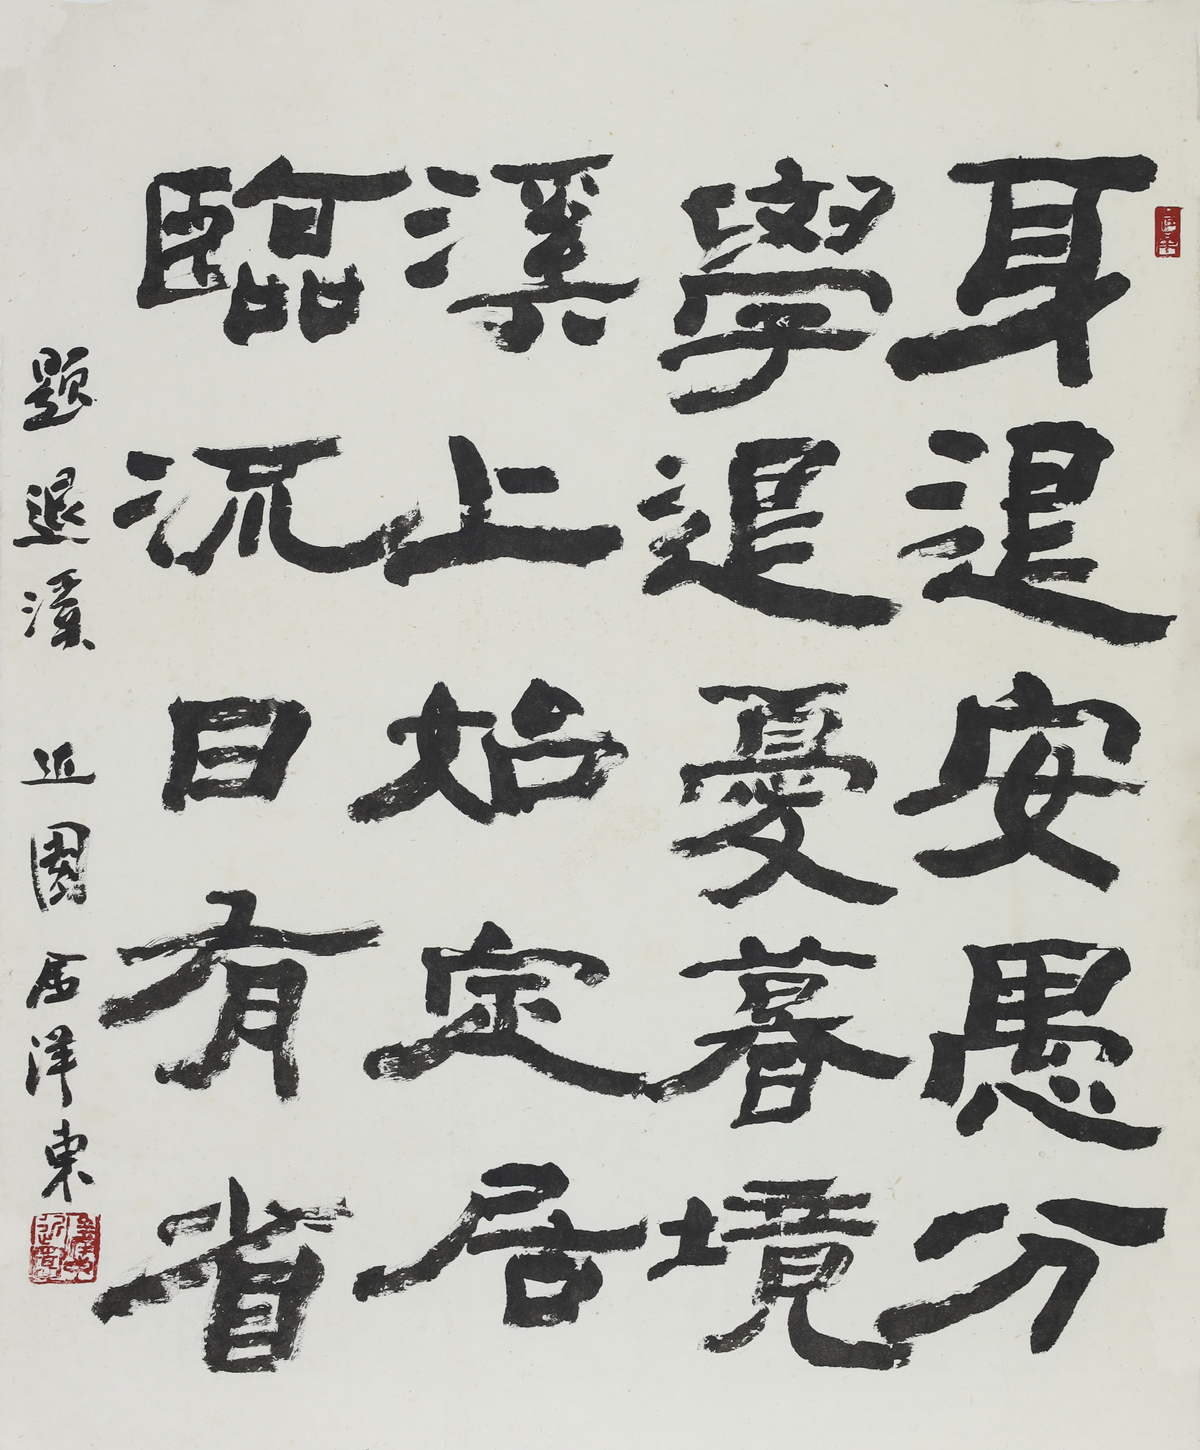 身退安愚分
學退憂暮境
溪上始定居
臨流日有省
題退溪 近園居洋東